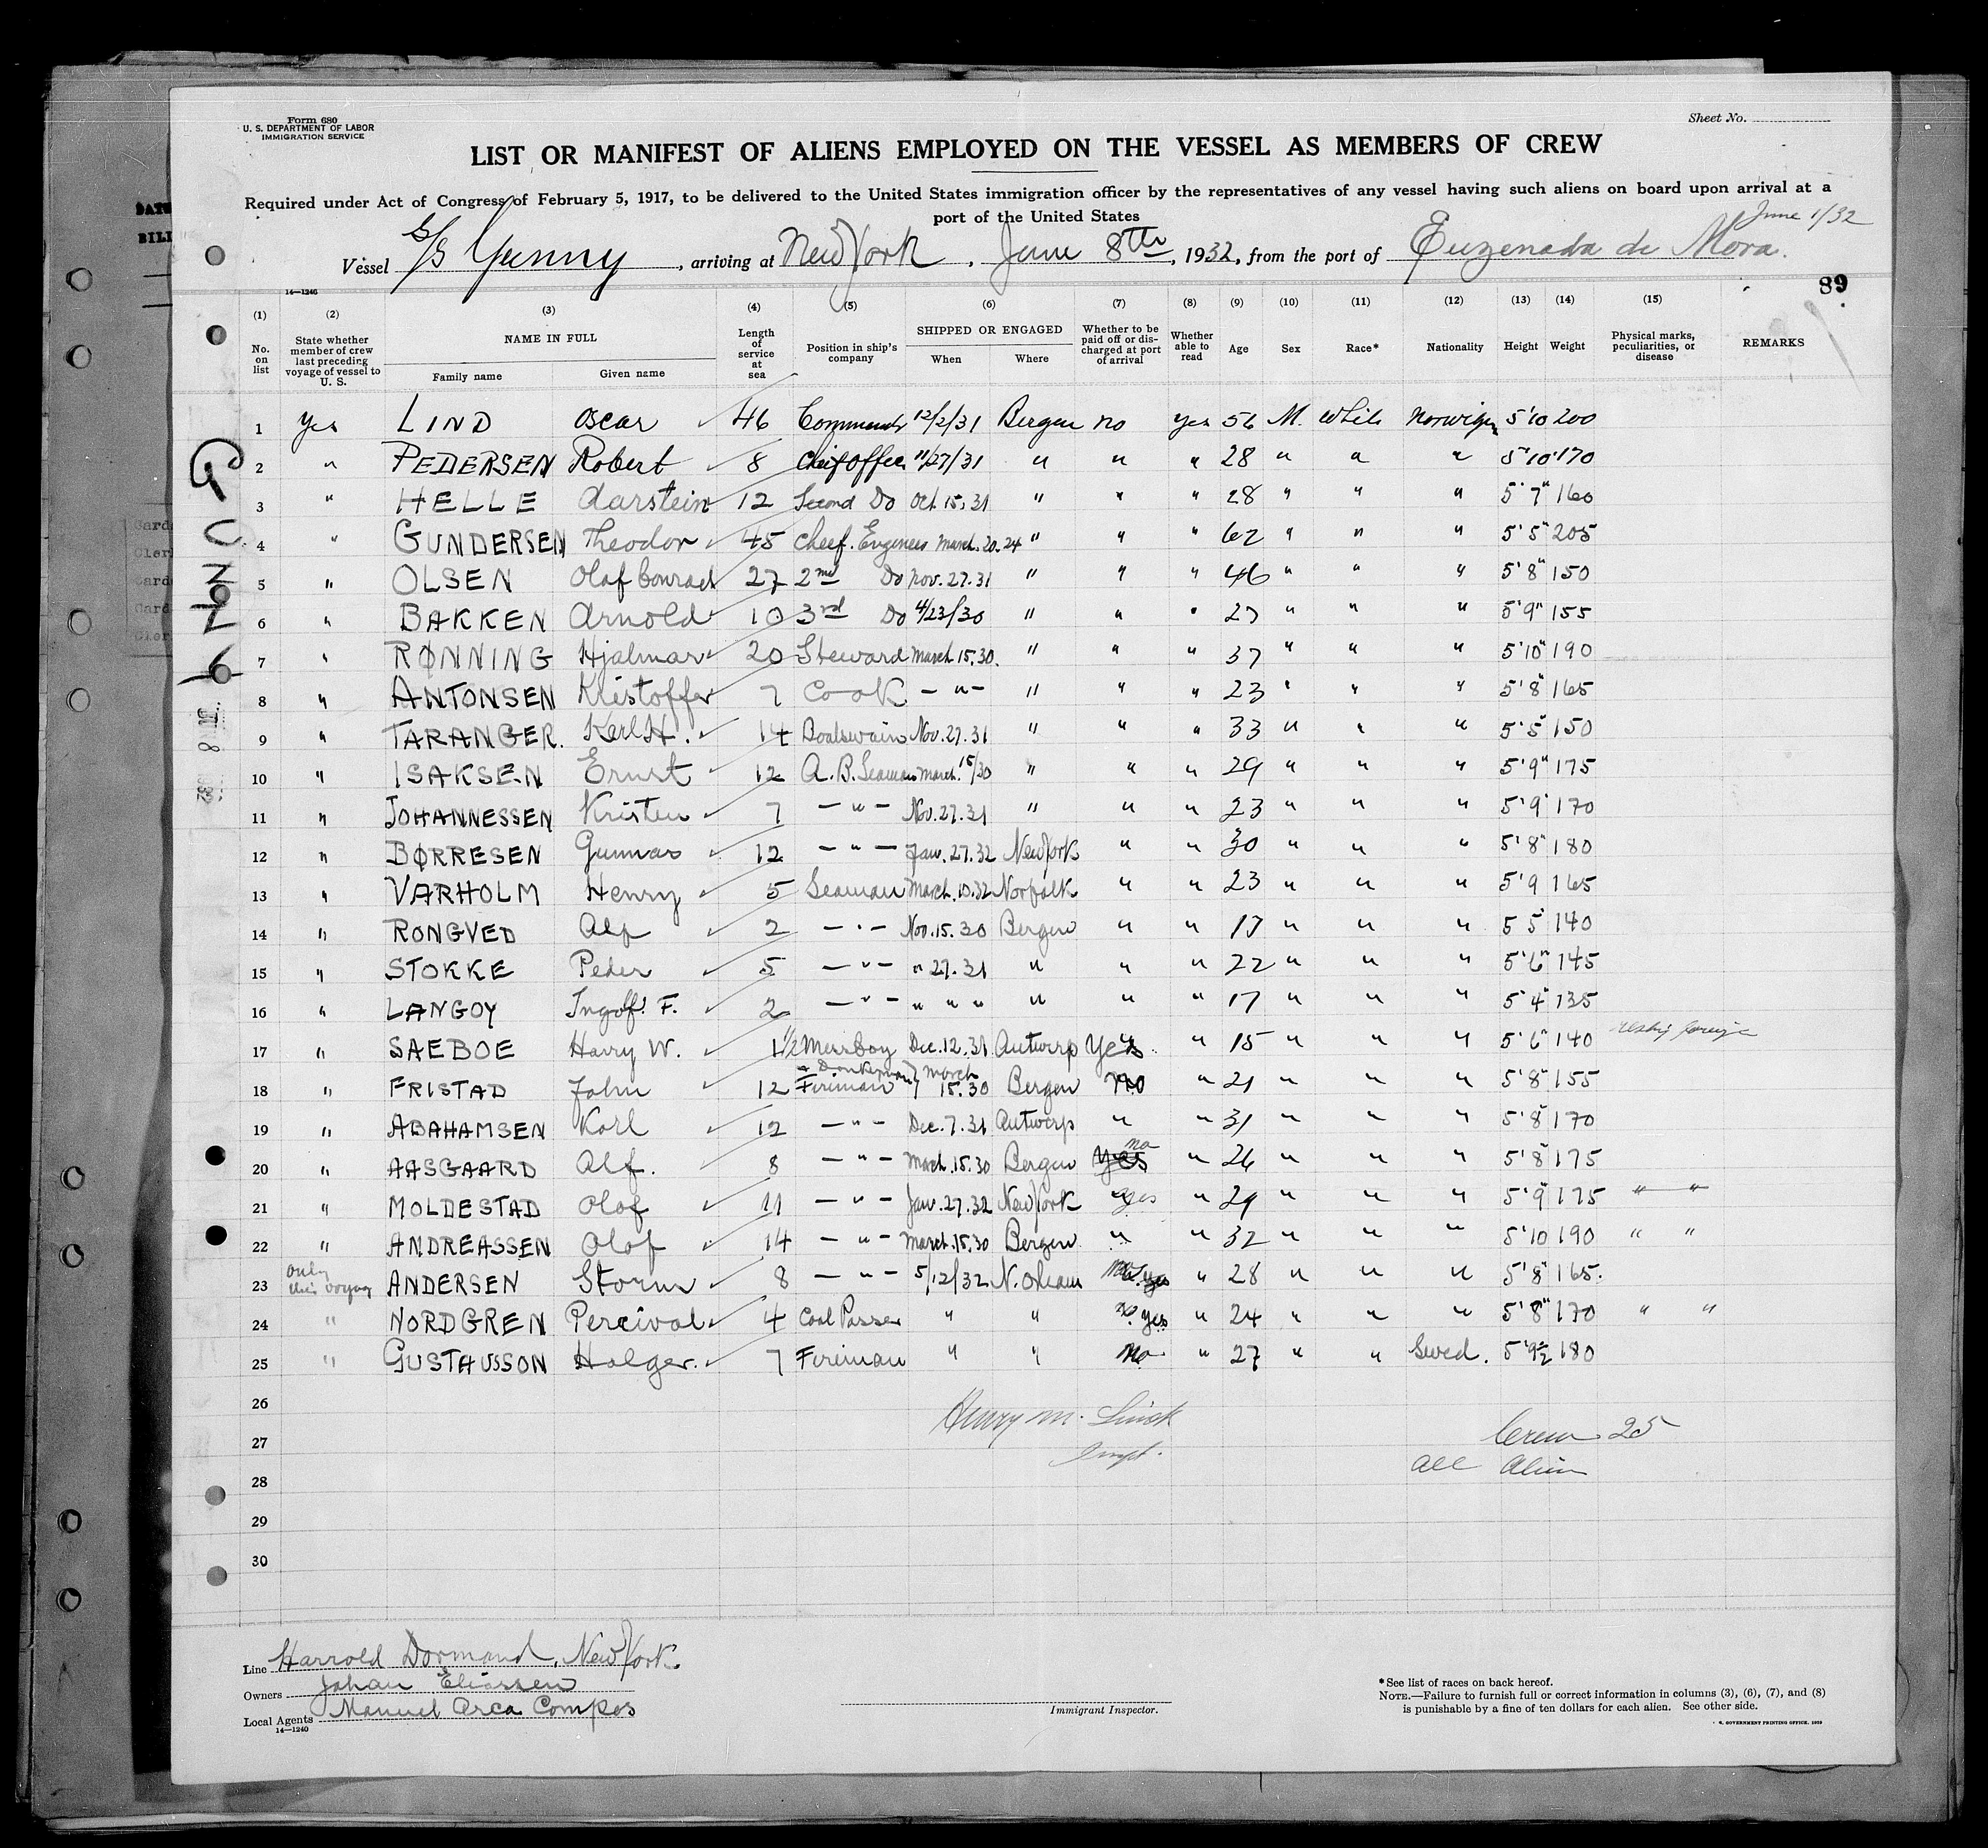 Form 680
U. S. DEPARTMENT OF LABOR
IMMIGRATION SERVICE
Sheet No.
LIST OR MANIFEST OF ALIENS EMPLOYED ON THE VESSEL AS MEMBERS OF CREW
Required under Act of Congress of February 5, 1917, to be delivered to the United States immigration officer by the representatives of any vessel having such aliens on board upon arrival at a
port of the United States
June 1/32
Vessel S/S Gunny, arriving at New York, June 8th, 1932, from the port of Enzenada de Mora.
14—1240
89
(1) (2) (3) (4) (5) (6) (7) (8) (9) (10) (11) (12) (13) (14) (15)
No. on list State whether member of crew last preceding voyage of vessel to U. S. NAME IN FULL Family name Given name Length of service at sea Position in ship's company SHIPPED OR ENGAGED When Where Whether to be paid off or discharged at port of arrival Whether able to read Age Sex Race* Nationality Height Weight Physical marks, peculiarities, or disease REMARKS
GUNNY
1 Yes LIND Oscar 46 12/2/31 Bergen no yes 56 M. White 5'10 200
2 " PEDERSEN Robert 8 Cheif Officer 11/27/31 " " " 28 " " " 5'10" 170
3 " HELLE Aarstein 12 Second Do Oct. 15.31 " " " 28 " " " 5'7" 160
4 " GUNDERSEN Theodor 45 Cheef. Engeneer March. 20.24 " " " 62 " " " 5'5" 205
5 " OLSEN Olaf Conrad 27 2nd Do Nov. 27.31 " " " 46 " " " 5'8" 150
6 " BAKKEN Arnold 10 3rd Do 4/23/30 " " " 27 " " " 5'9" 155
7 " RØNNING Hjalmar 20 Steward March 15.30. " " " 37 " " " 5'10" 190
8 " ANTONSEN Kristoffer 7 Cook — " — " " " 23 " " " 5'8" 165
9 " TARANGER. Karl H. 14 Boatswain Nov. 27.31 " " " 33 " " " 5'5" 150
10 " ISAKSEN Ernst 12 A. B. Seaman March. 15/30 " " " 29 " " " 5'9" 175
11 " JOHANNESSEN Kristen 7 — " — Nov. 27.31 " " " 23 " " " 5'9" 170
12 " BØRRESEN Gunnar 12 — " — Jan. 27.32 New York " " 30 " " " 5'8" 180
13 " VARHOLM Henry 5 Seaman March. 10.32 Norfolk " " 23 " " " 5'9 165
14 " RONGVED Alf 2 — " — Nov. 15.30 Bergen " " 17 " " " 5 5" 140
15 " STOKKE Peder 5 — " — " 27.31 " " " 22 " " " 5'6" 145
16 " LANGOY Ingolf. F. 2 — " — " " " " " " 17 " " " 5'4" 135
17 " SAEBOE Harry W. 1 1/2 Messboy Dec. 12.31 Antwerp Yes " 15 " " " 5'6" 140
18 " FRISTAD John 12 & Donkeyman Fireman March 15.30 Bergen No " 21 " " " 5'8" 155
19 " ABAHAMSEN Karl 12 — " — Dec. 7.31 Antwerp " " 31 " " " 5'8" 170
20 " AASGAARD Alf. 8 — " — March. 15.30 Bergen Yes no " 26 " " " 5'8" 175
21 " MOLDESTAD Olaf 11 — " — Jan. 27.32 New York yes " 29 " " " 5'9" 175 " "
22 " ANDREASSEN Olaf 14 — " — March. 15.30 Bergen " " 32 " " " 5'10 190 " "
23 Only this voyage ANDERSEN Storm 8 — " — 5/12/32 N. Orleans yes " 28 " " " 5'8" 165.
24 " NORDGREN Percival 4 Coal Passer " " no yes " 24 " " " 5'8" 170 " "
25 " GUSTAUSSON Holger. 7 Fireman " " No " 27 " " Swed. 5'9 1/2 180
26
27
28
29
30
Henry M.
Inspt.
Crew 25
All Alien
Line Harrold Dormand, New York
Owners Johan Eliassen
Local Agents Manuel Arca Compos
14—1240
Immigrant Inspector.
*See list of races on back hereof.
NOTE.—Failure to furnish full or correct information in columns (3), (6), (7), and (8)
is punishable by a fine of ten dollars for each alien. See other side.